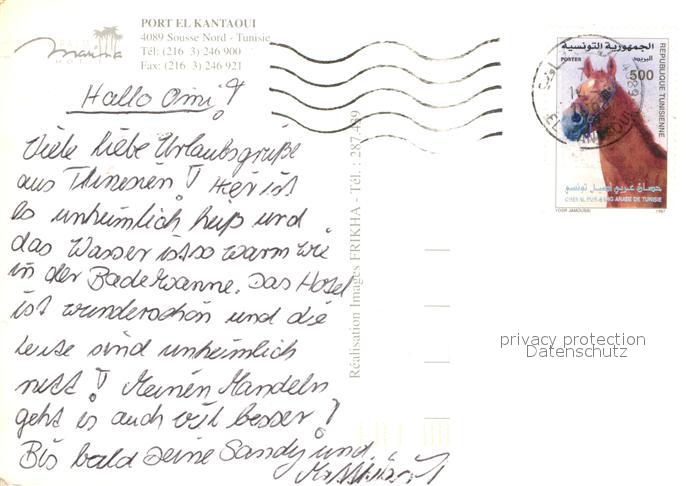 PORT EL KANTAOUI
4089 Sousse Nord - Tunisie
Tél: (216 3) 246 900
Fax: (216 3) 246 921
marina
Hallo Omi!
Viele liebe Urlaubsgrüße
aus Thunesien! Hier ist
es unheimlich heiß und
das Wasser ist so warm wie
in der Badewanne. Das Hotel
ist wunderschön und die
Leute sind unheimlich
nett! Meinen Mandeln
geht es auch viel besser!
Bis bald Deine Sandy und
Réalisation Images FRIKHA - Tél.: 287.429
الجمهورية التونسية
POSTER البريد
500
REPUBLIQUE TUNISIENNE
4089
EL KANTAOUI
حصان عربي أصيل تونسي
CHEVAL PUR-SANG ARABE DE TUNISIE
YOSR JAMOUSSI 1997
privacy protection
Datenschutz